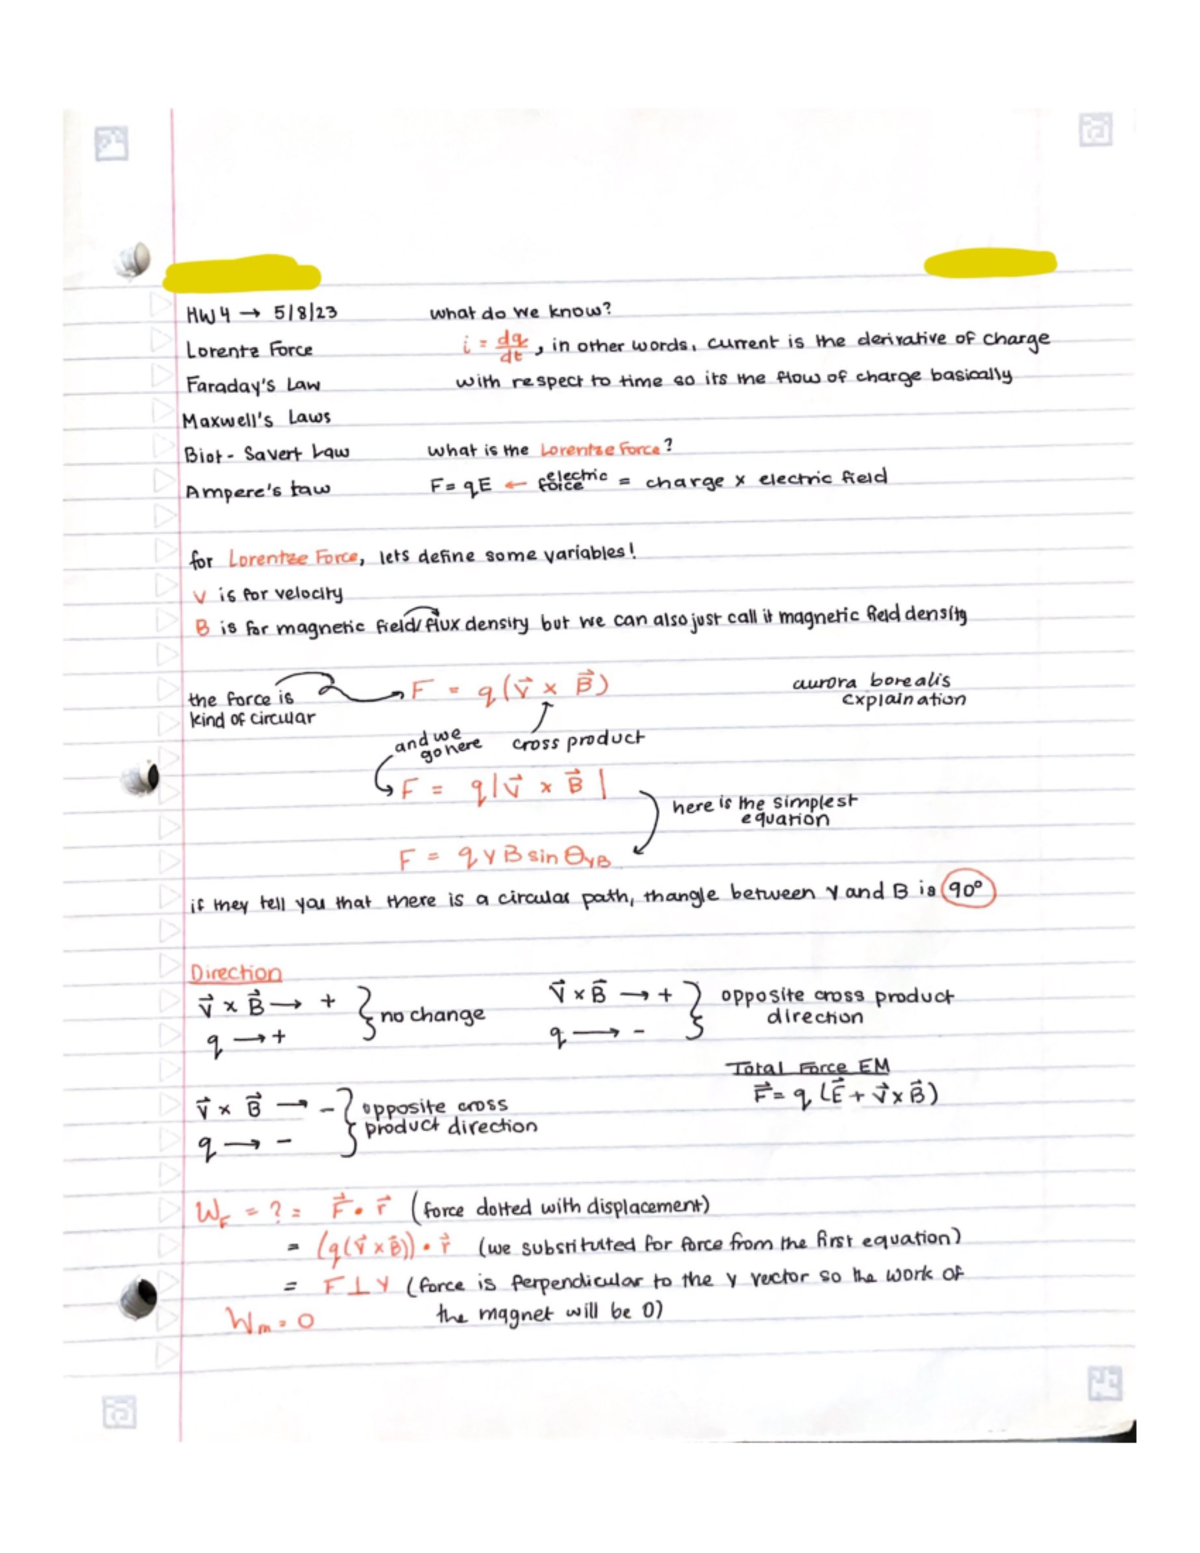 HW 4 → 5/8/23
Lorentz Force
Faraday's Law
Maxwell's Laws
Biot - Savert Law
Ampere's Law
what do we know?
i = dq/dt, in other words, current is the derivative of charge
with respect to time so its the flow of charge basically
what is the Lorentze Force?
F = qE ← electric force = charge x electric field
for Lorentze Force, lets define some variables!
V is for velocity
B is for magnetic field/flux density but we can also just call it magnetic field density
the force is
kind of circular
F = q(v⃗ × B⃗)
aurora borealis
explaination
and we
go here
cross product
F = q|v⃗ × B⃗|
here is the simplest
equation
F = qVB sin θVB
if they tell you that there is a circular path, thangle between V and B is 90°
Direction
v⃗ × B⃗ → +
q → +
no change
v⃗ × B⃗ → +
q → -
opposite cross product
direction
v⃗ × B⃗ → -
q → -
opposite cross
product direction
Total Force EM
F⃗ = q(E⃗ + v⃗ × B⃗)
WF = ? = F⃗ • r⃗ (force dotted with displacement)
= (q(v⃗ × B⃗)) • r⃗ (we substituted for force from the first equation)
= F ⊥ V (force is perpendicular to the V vector so the work of
the magnet will be 0)
Wm = 0